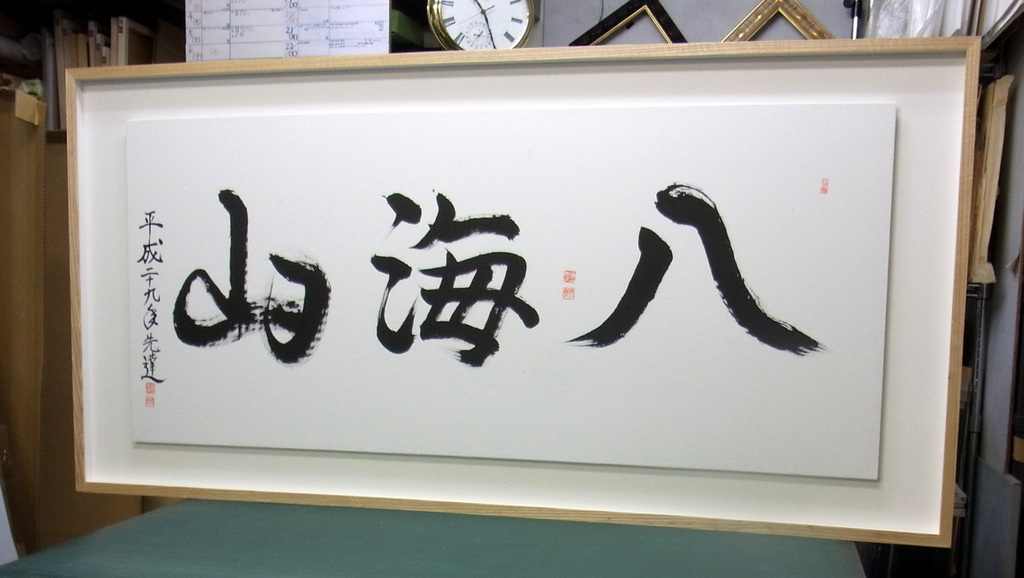 八海山
平成二十九年 先達